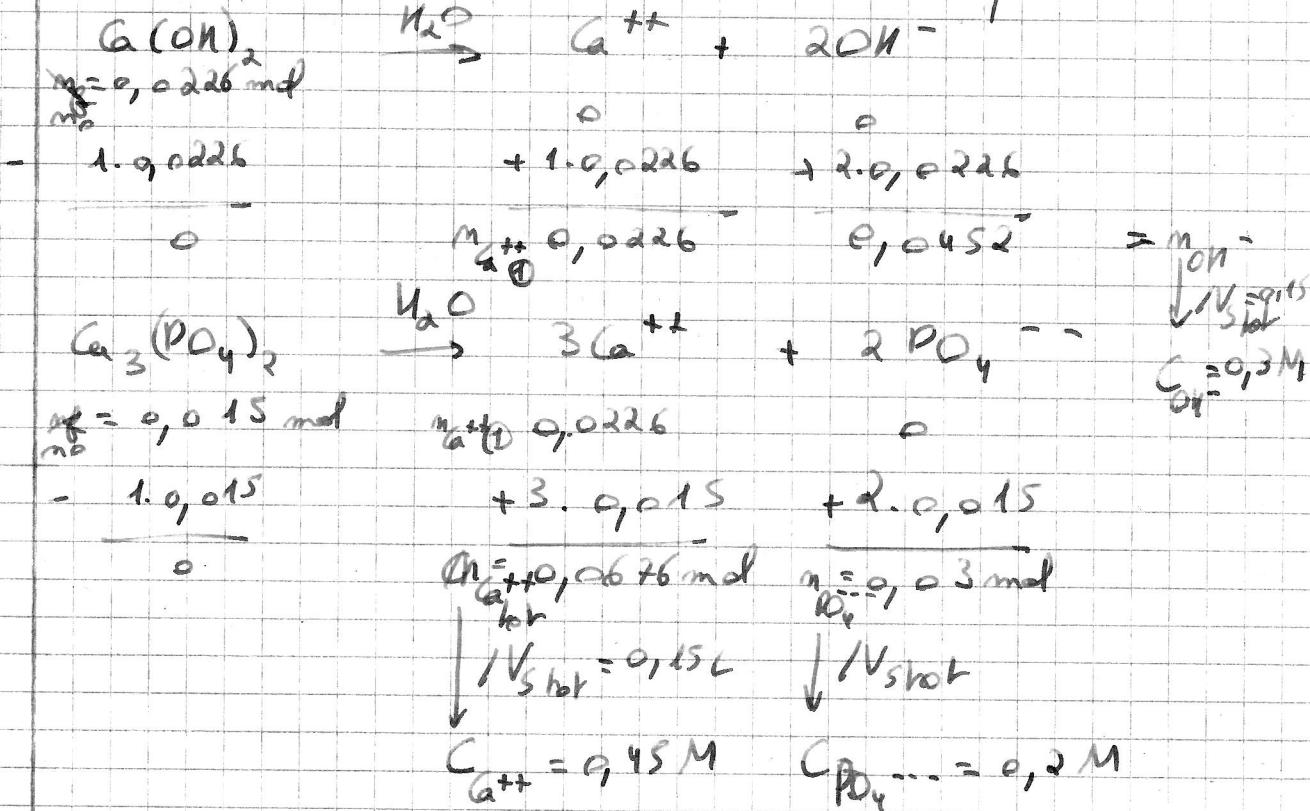 Ca(OH)₂ —H₂O→ Ca⁺⁺ + 2OH⁻
n₀ = 0,0226 mol 0 0
- 1.0,0226 + 1.0,0226 + 2.0,0226
0 n Ca⁺⁺① 0,0226 0,0452 = n OH⁻
/V S tot = 0,15
C OH⁻ = 0,3 M
Ca₃(PO₄)₂ —H₂O→ 3Ca⁺⁺ + 2 PO₄⁻⁻
n₀ = 0,015 mol n Ca⁺⁺① 0,0226 0
- 1.0,015 + 3.0,015 + 2.0,015
0 n Ca⁺⁺ tot = 0,0676 mol n PO₄--- = 0,03 mol
/V S tot = 0,15 L /V S tot
C Ca⁺⁺ = 0,45 M C PO₄--- = 0,2 M